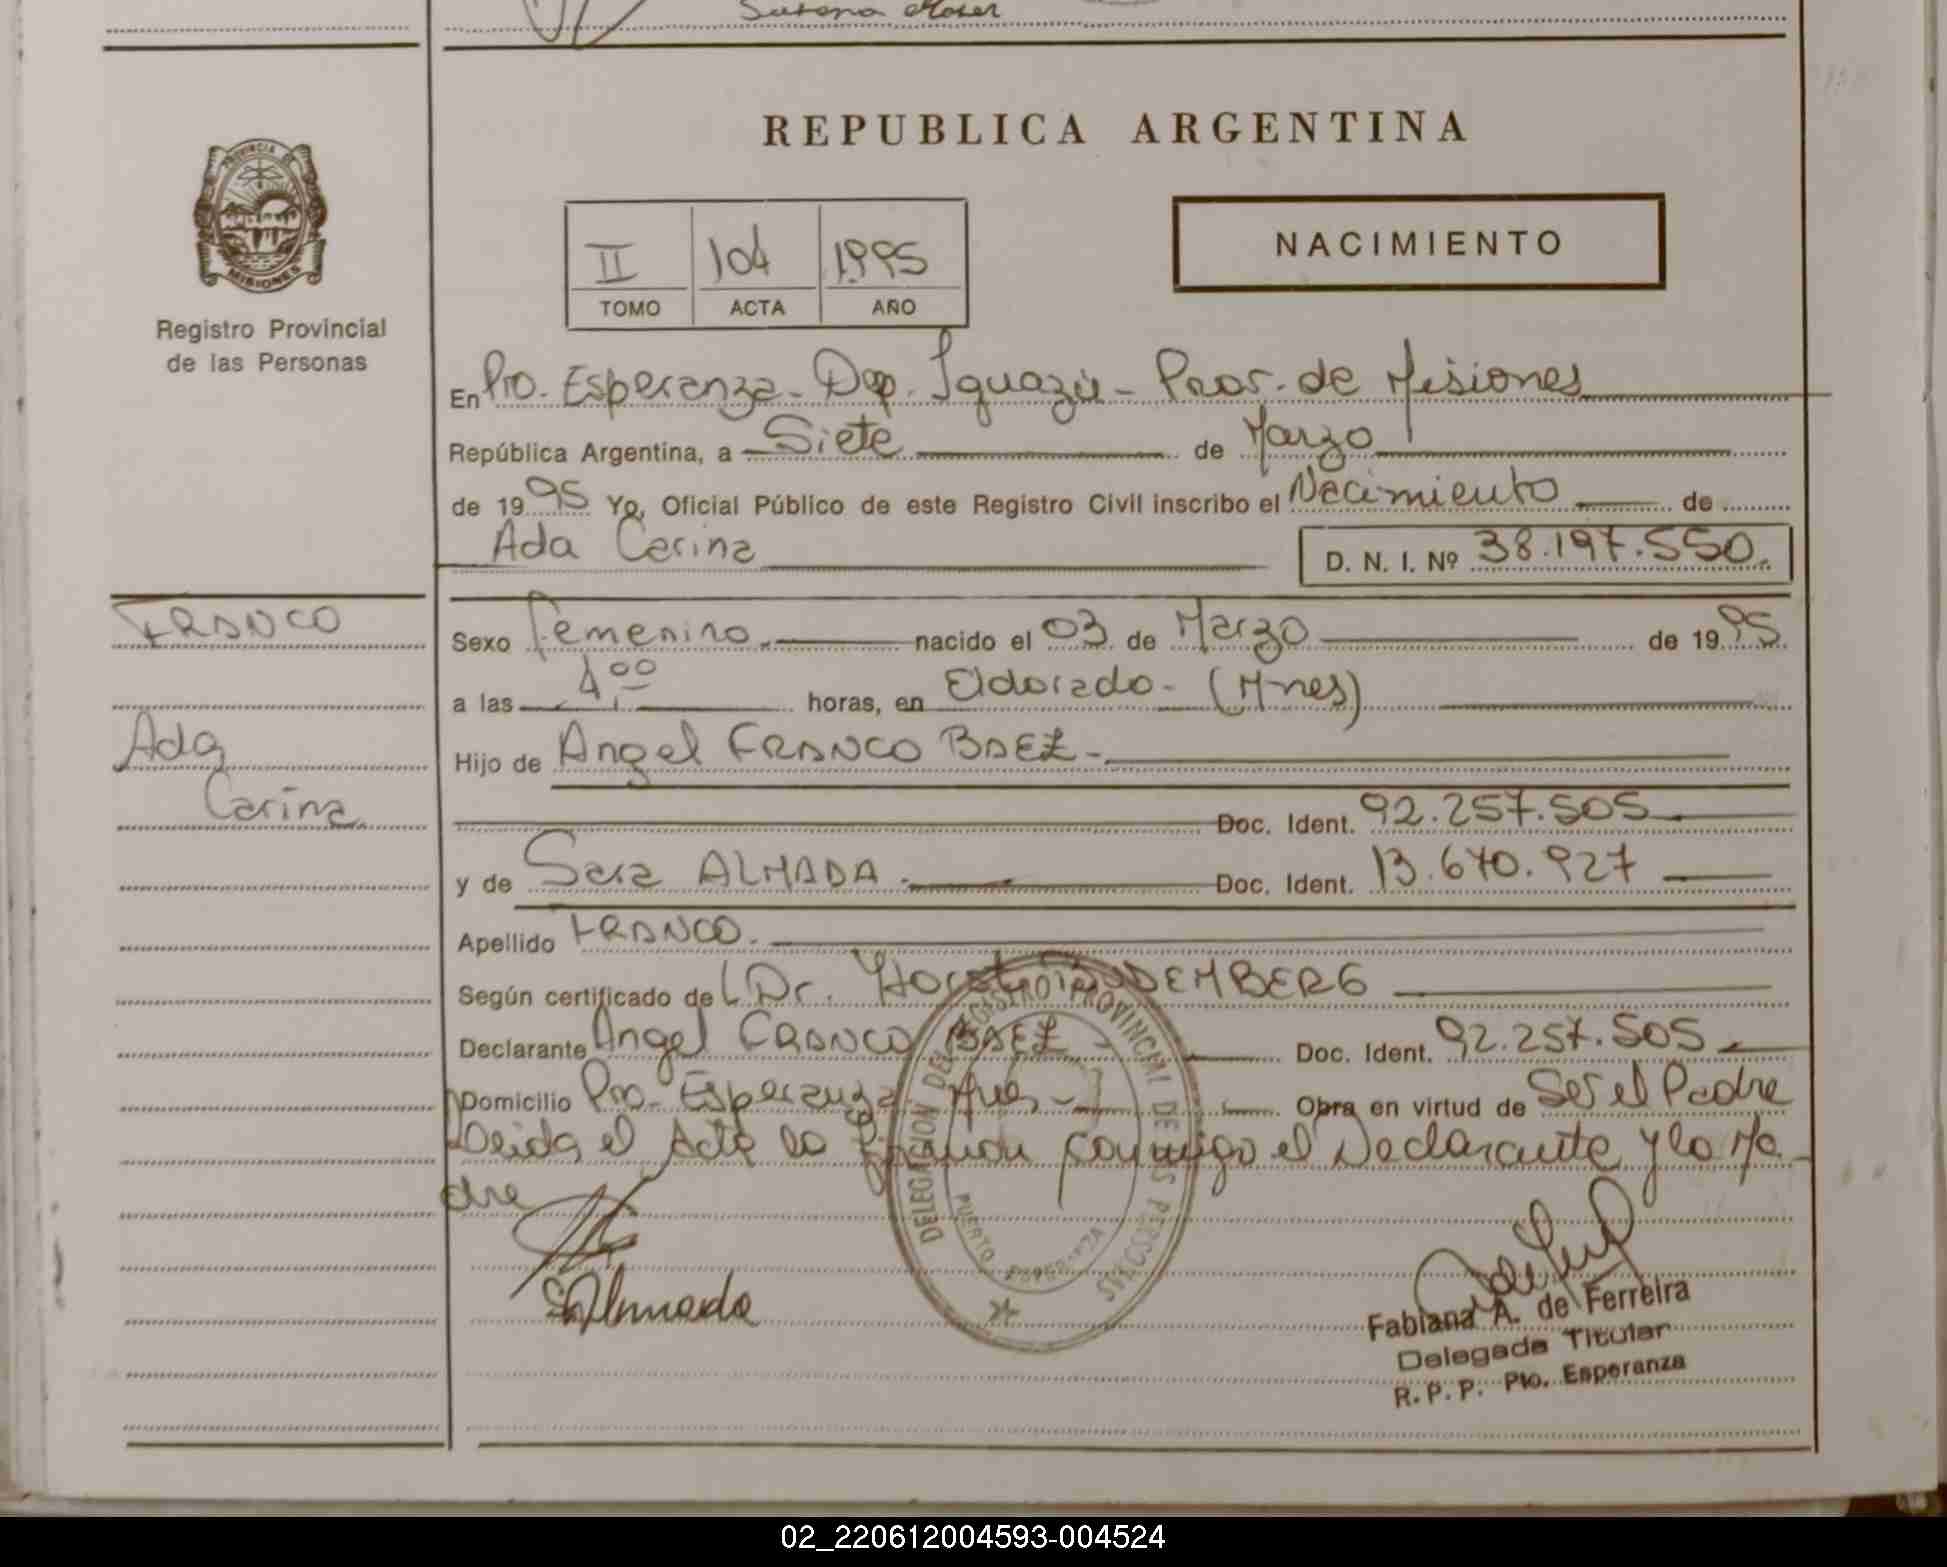 Susana Moser
REPUBLICA ARGENTINA
PROVINCIA DE
MISIONES
Registro Provincial
de las Personas
II 104 1995
TOMO ACTA AÑO
NACIMIENTO
En Pto. Esperanza - Dep. Iguazú - Prov. de Misiones
República Argentina, a Siete de Marzo
de 1995 Yo, Oficial Público de este Registro Civil inscribo el Nacimiento de
Ada Carina D. N. I. Nº 38.197.550.
FRANCO
Ada
Carina
Sexo Femenino. nacido el 03 de Marzo de 1995.
a las 4,00 horas, en Eldorado - (Mnes)
Hijo de Angel FRANCO BAEZ -
Doc. Ident. 92.257.505
y de Sara ALMADA. Doc. Ident. 13.670.927
Apellido FRANCO.
Según certificado del Dr.
Declarante Angel FRANCO BAEZ - Doc. Ident. 92.257.505
Domicilio Pto. Esperanza Mnes - Obra en virtud de Ser el Padre
Leida el Acta la Firman conmigo el Declarante y la Ma-
dre
S Almada
DELEGACION DEL REGISTRO PROVINCIAL DE LAS PERSONAS
PUERTO ESPERANZA
Fabiana A. de Ferreira
Delegada Titular
R. P. P. Pto. Esperanza
02_220612004593-004524